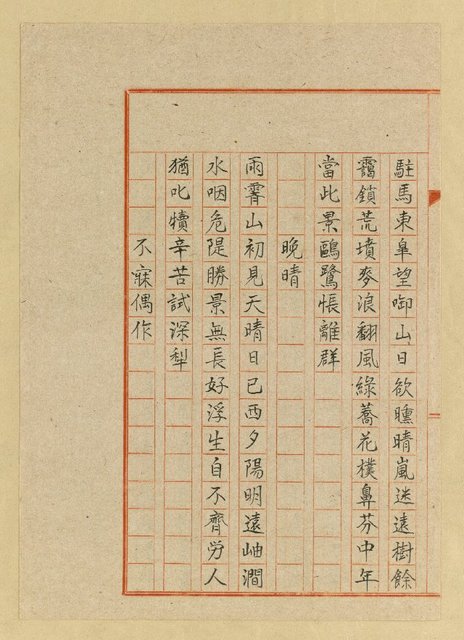 駐馬東皐望啣山日欲曛晴嵐迷遠樹餘
靄鎖荒墳麥浪翻風綠蕎花樸鼻芬中年
當此景鷗鷺悵離群
晩晴
雨霽山初見天晴日已西夕陽明遠岫澗
水咽危隄勝景無長好浮生自不齊労人
猶叱犢辛苦試深犁
不寐偶作